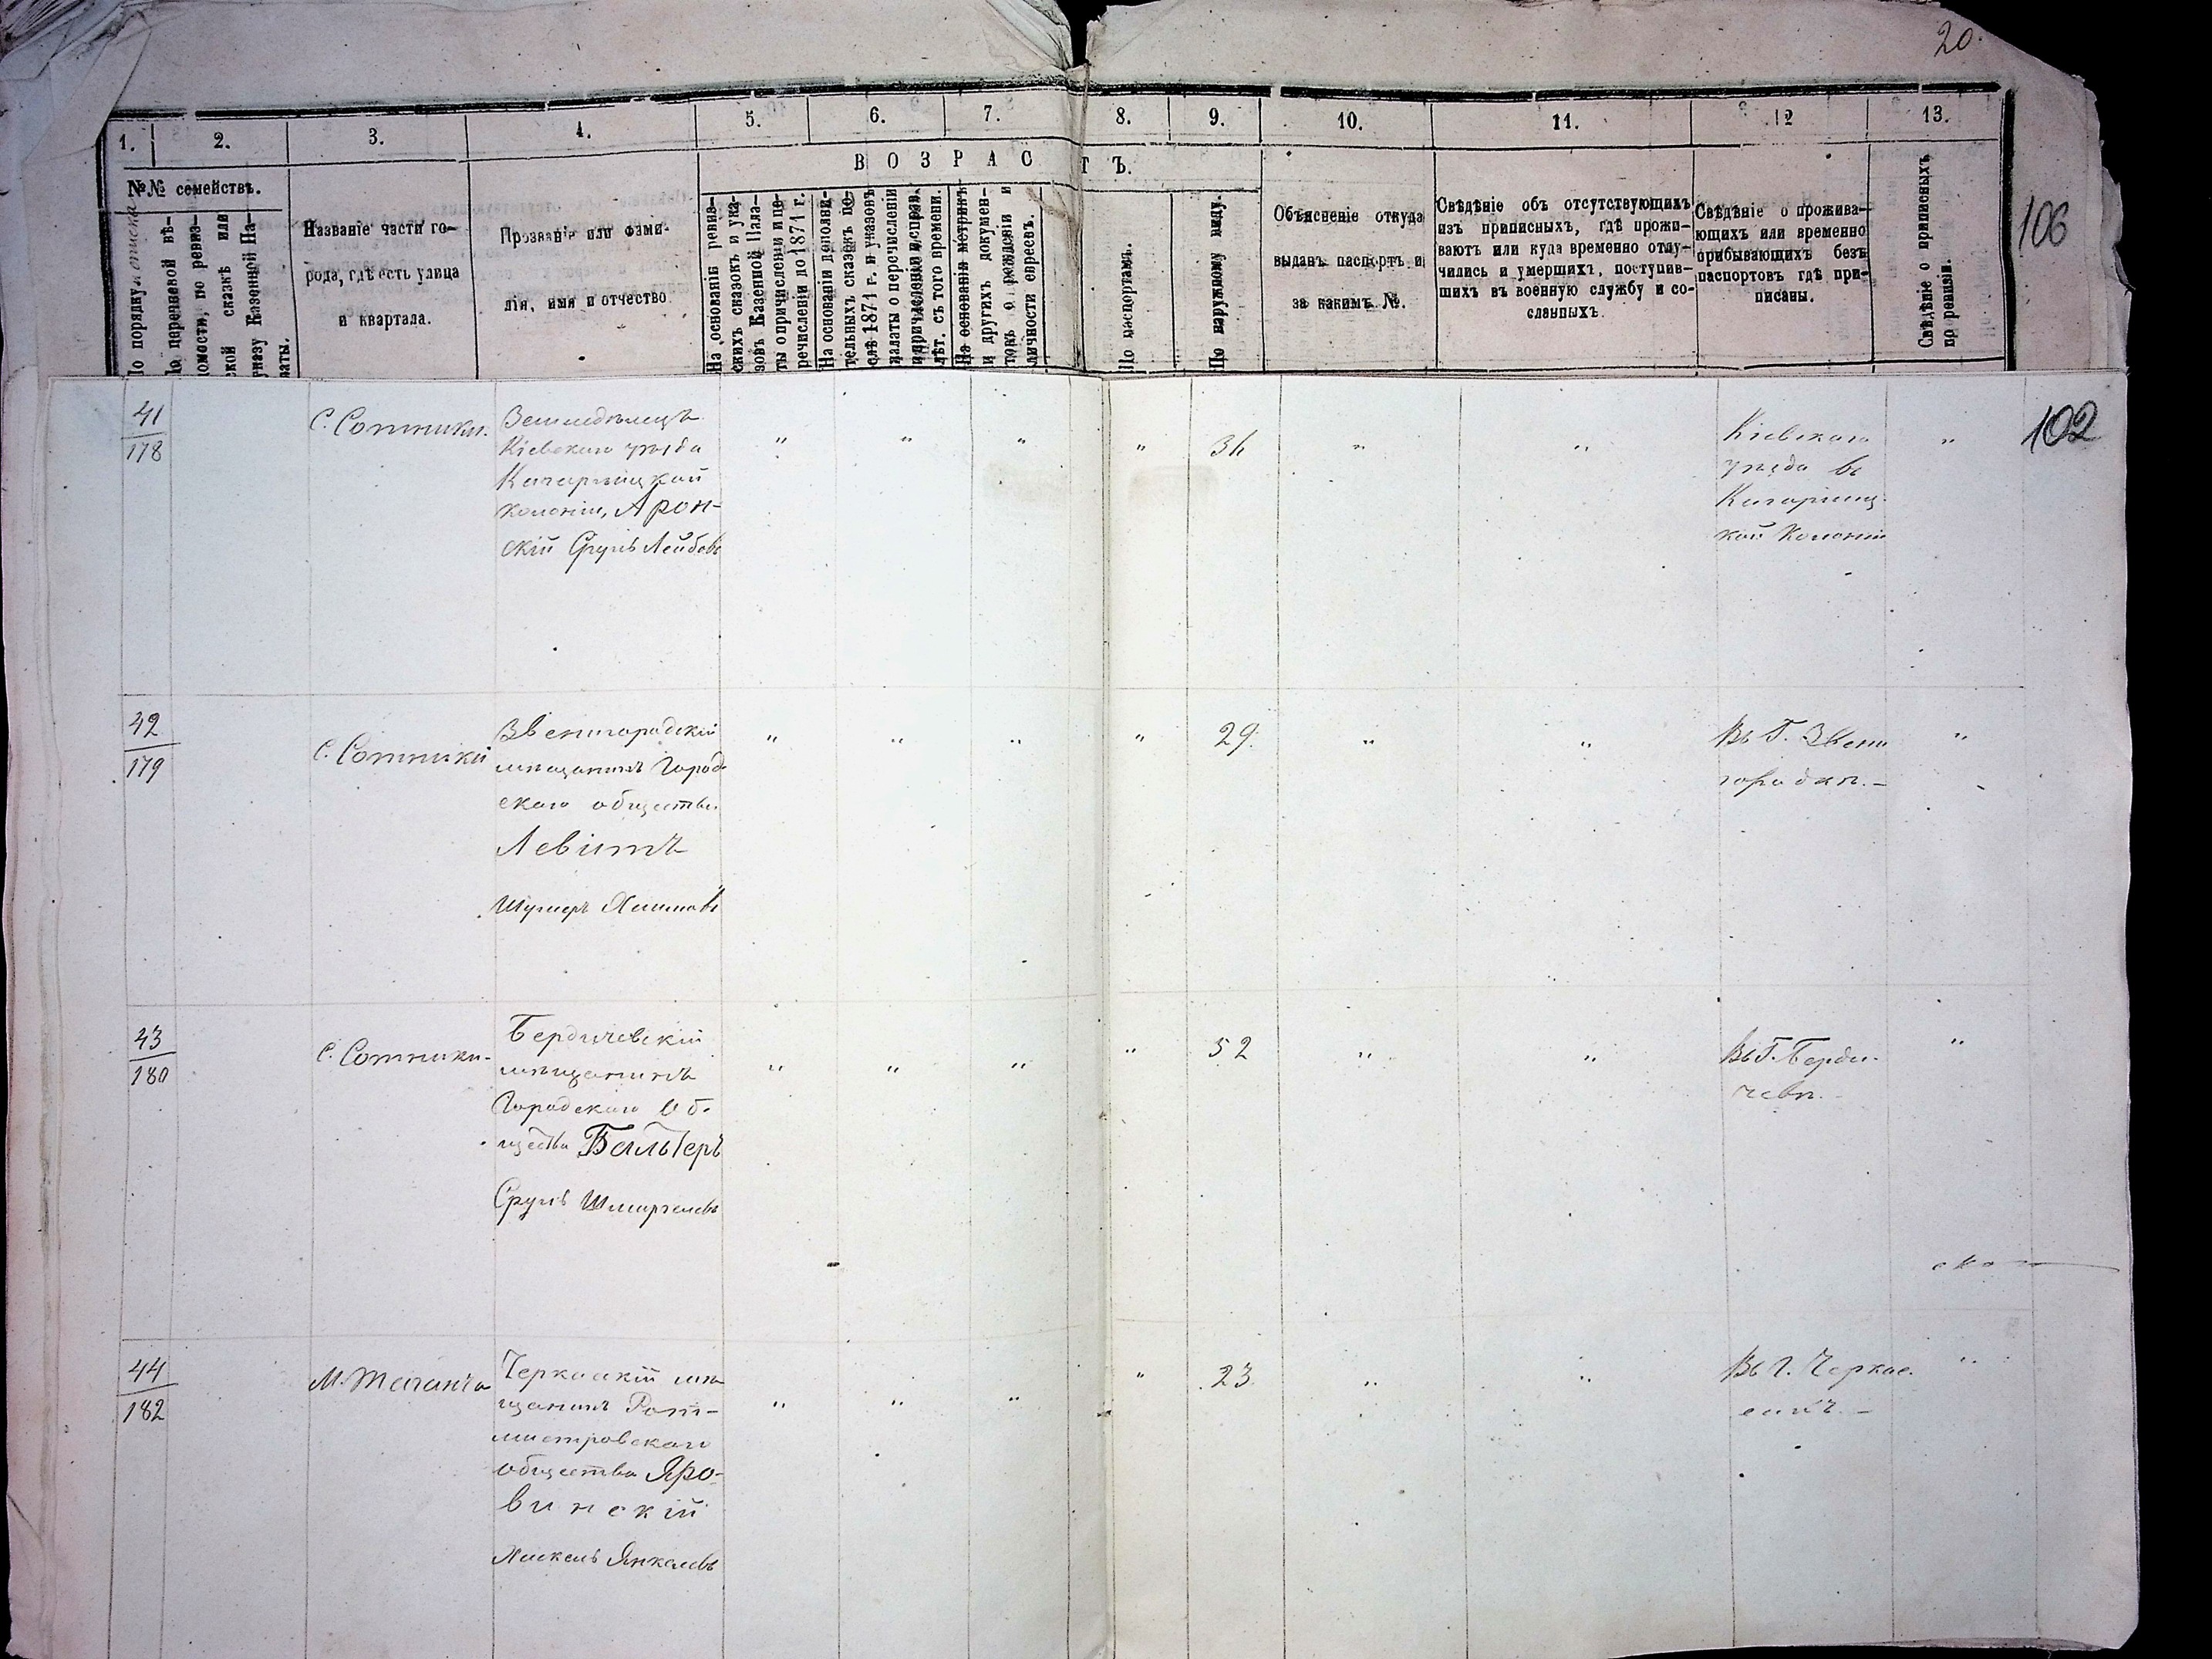 20.
106
1. 2. 3. 4. 5. 6. 7. 8. 9. 10. 11. 12 13.
№№ семействъ.
По порядку
По переписной вѣ-
домости, по ревиз-
ской сказкѣ или
указу Казенной Па-
латы.
Названіе части го-
рода, гдѣ есть улица
и квартала.
Прозваніе или фами-
лія, имя и отчество.
ВОЗРАСТЪ.
На основаніи ревиз-
скихъ сказокъ и ука-
зовъ Казенной Пала-
ты о причисленіи и пе-
речисленіи до 1871 г.
На основаніи дополни-
тельныхъ сказокъ по-
слѣ 1871 г. и указовъ
палаты о перечисленіи
и причисленіи и справ.
лѣт. съ того времени.
На основаніи метрикъ
и другихъ докумен-
товъ о рожденіи и
личности евреевъ.
По паспортамъ.
По наружному виду.
Объясненіе откуда
выданъ паспортъ и
за какимъ №.
Свѣдѣніе объ отсутствующихъ
изъ приписныхъ, гдѣ прожи-
ваютъ или куда временно отлу-
чились и умершихъ, поступив-
шихъ въ военную службу и со-
сланныхъ.
Свѣдѣніе о прожива-
ющихъ или временно
прибывающихъ безъ
паспортовъ гдѣ при-
писаны.
Свѣдѣніе о приписныхъ
по ревизіи.
102
41
178
С. Сотники.
Земледѣлецъ
Кіевскаго уѣзда
Кагарлицкой
колоніи, Арон-
скій Сруль Лейбовъ
" " " " 36 " "
Кіевскаго
уѣзда въ
Кагарлиц-
кой Колоніи
"
42
179
С. Сотники
Звенигородскій
мѣщанинъ Город-
скаго общества
Левитъ
Хаимовъ
" " " " 29. " "
Въ Г. Звени
городкѣ. –
"
43
180
С. Сотники-
Бердичевскій
мѣщанинъ
Городскаго Об-
щества Бальтеръ
Сруль
" " " " 52 " "
Въ Г. Берди-
чевѣ. -
"
44
182
М. Таганча
Черкасскій мѣ
щанинъ Рот-
мистровскаго
общества Яро-
винскій
Хаскель Янкелевъ
" " " " 23. " "
Въ Г. Черкас-
сахъ. –
"